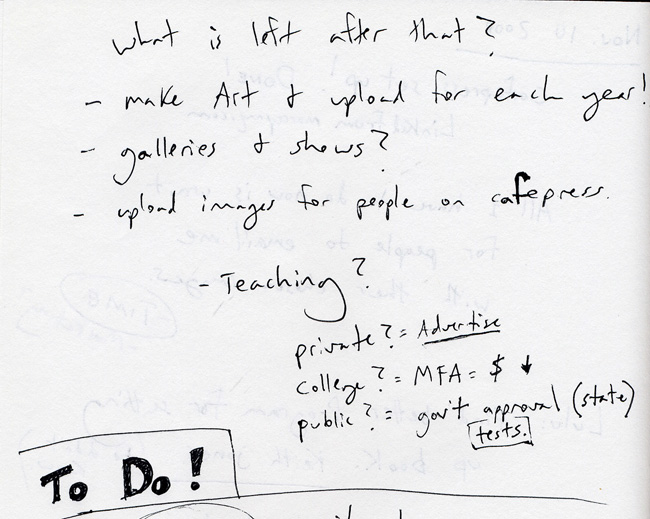 what is left after that?
- make Art & upload for each year!
- galleries & shows?
- upload images for people on cafepress.
- Teaching?
private? = Advertise
college? = MFA = $ ↓
public? = gov't approval (state)
tests.
To Do!